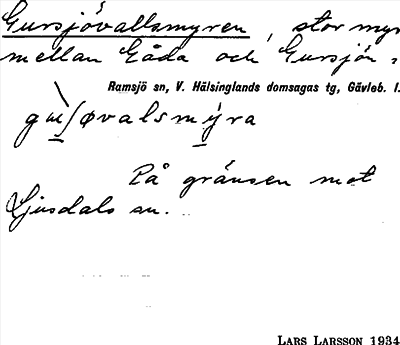 Gursjövallsmyren, stor myr
mellan Gåda och Gursjön.
Ramsjö sn, V. Hälsinglands domsagas tg, Gävleb. l.
På gränsen mot
Ljusdals sn.
LARS LARSSON 1934